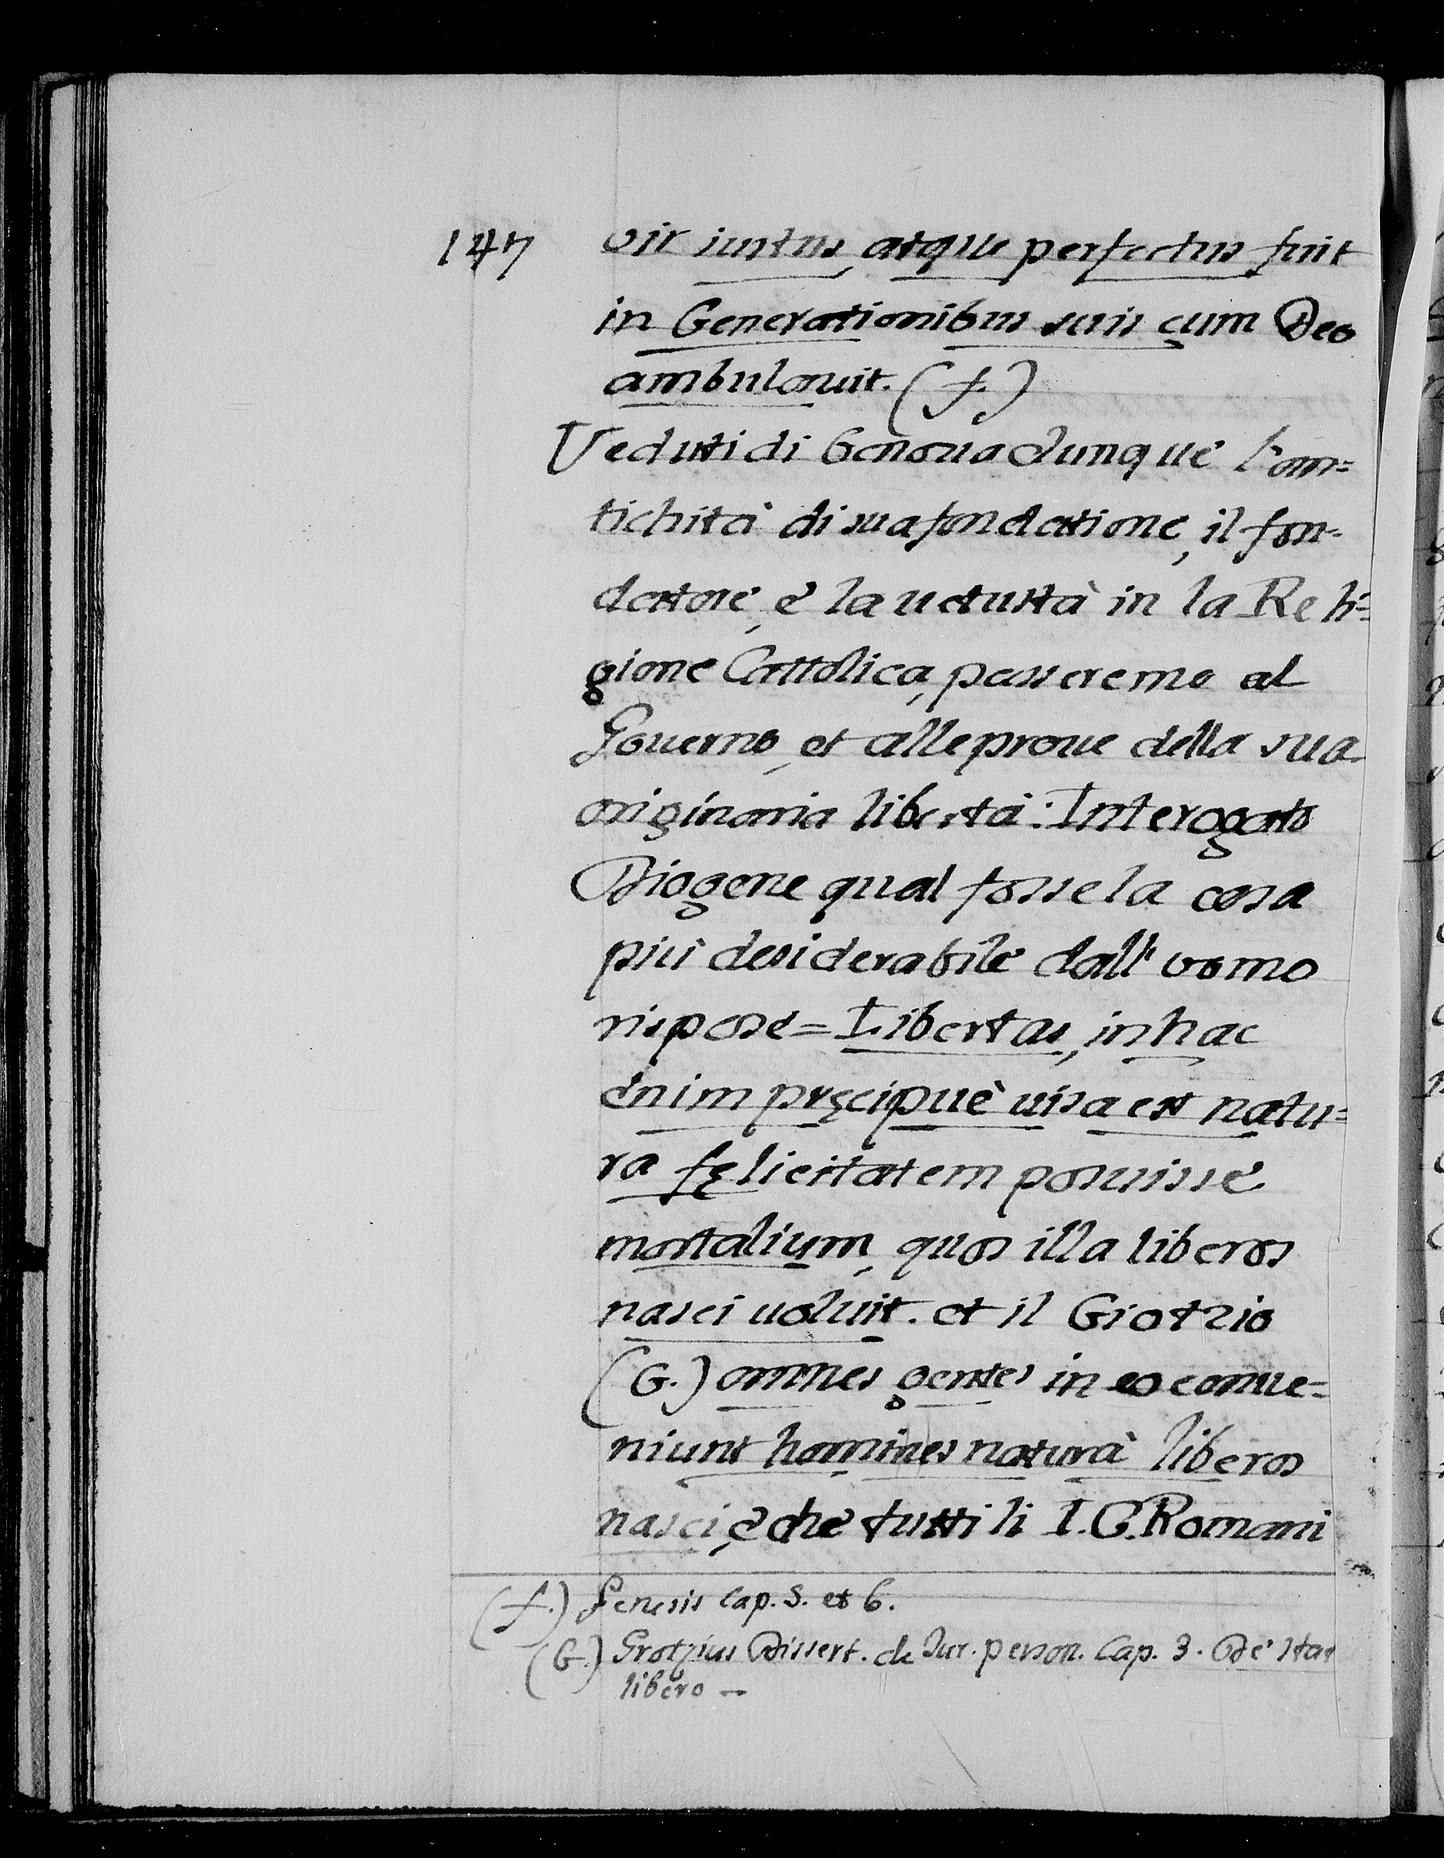 147
vir iustus, atque perfectus fuit
in Generationibus suis cum Deo
ambulauit. (f.)
Veduti di Genoua dunque l'an=
tichità di sua fondatione, il fon=
datore, e la uetustà in la Reli=
gione Cattolica, passeremo al
Gouerno, et alle proue della sua
originaria libertà: Interogato
Diogene qual fosse la cosa
più desiderabile dall' vomo
rispose = Libertas, in hac
enim pręcipuè uisa est natu=
ra fęlicitatem posuisse
mortalium, quos illa liberos
nasci uoluit. et il Giotzio
(G.) omnes gentes in eo conue=
niunt homines naturà liberos
nasci, e che tutti li I. C. Romani
(f.) Genesis Cap. 5. et 6.
(G.) Grotzius Dissert. de Iur. person. Cap. 3. De stat
libero —